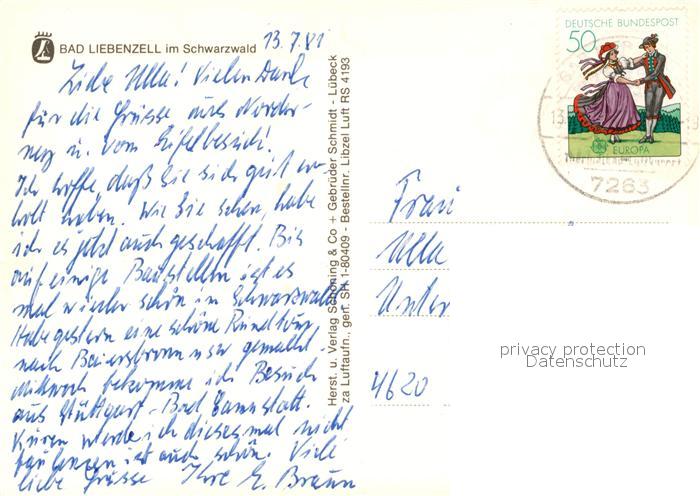 BAD LIEBENZELL im Schwarzwald
13.7.81
Liebe Ulla! Vielen Dank
für die Grüsse aus Norder-
ney u. vom Eifelbesuch!
Ich hoffe, daß Sie sich gut er-
holt haben. Wie Sie sehen, habe
ich es jetzt auch geschafft. Bis
auf einige Baustellen ist es
mal wieder schön im Schwarzwald.
Habe gestern eine schöne Rundtour
nach Baiersbronn usw gemacht.
Mittwoch bekomme ich Besuch
aus Stuttgart-Bad Cannstatt.
Kuren werde ich diesesmal nicht
faulenzen ist auch schön. Viele
liebe Grüsse Ihre E. Braun
Herst. u. Verlag Schöning & Co + Gebrüder Schmidt - Lübeck
za Luftaufn., gen. SH 1-80409 - Bestellnr. Libzel Luft RS 4193
DEUTSCHE BUNDESPOST
50
EUROPA
7263
Frau
Ulla
Unter
4620
privacy protection
Datenschutz